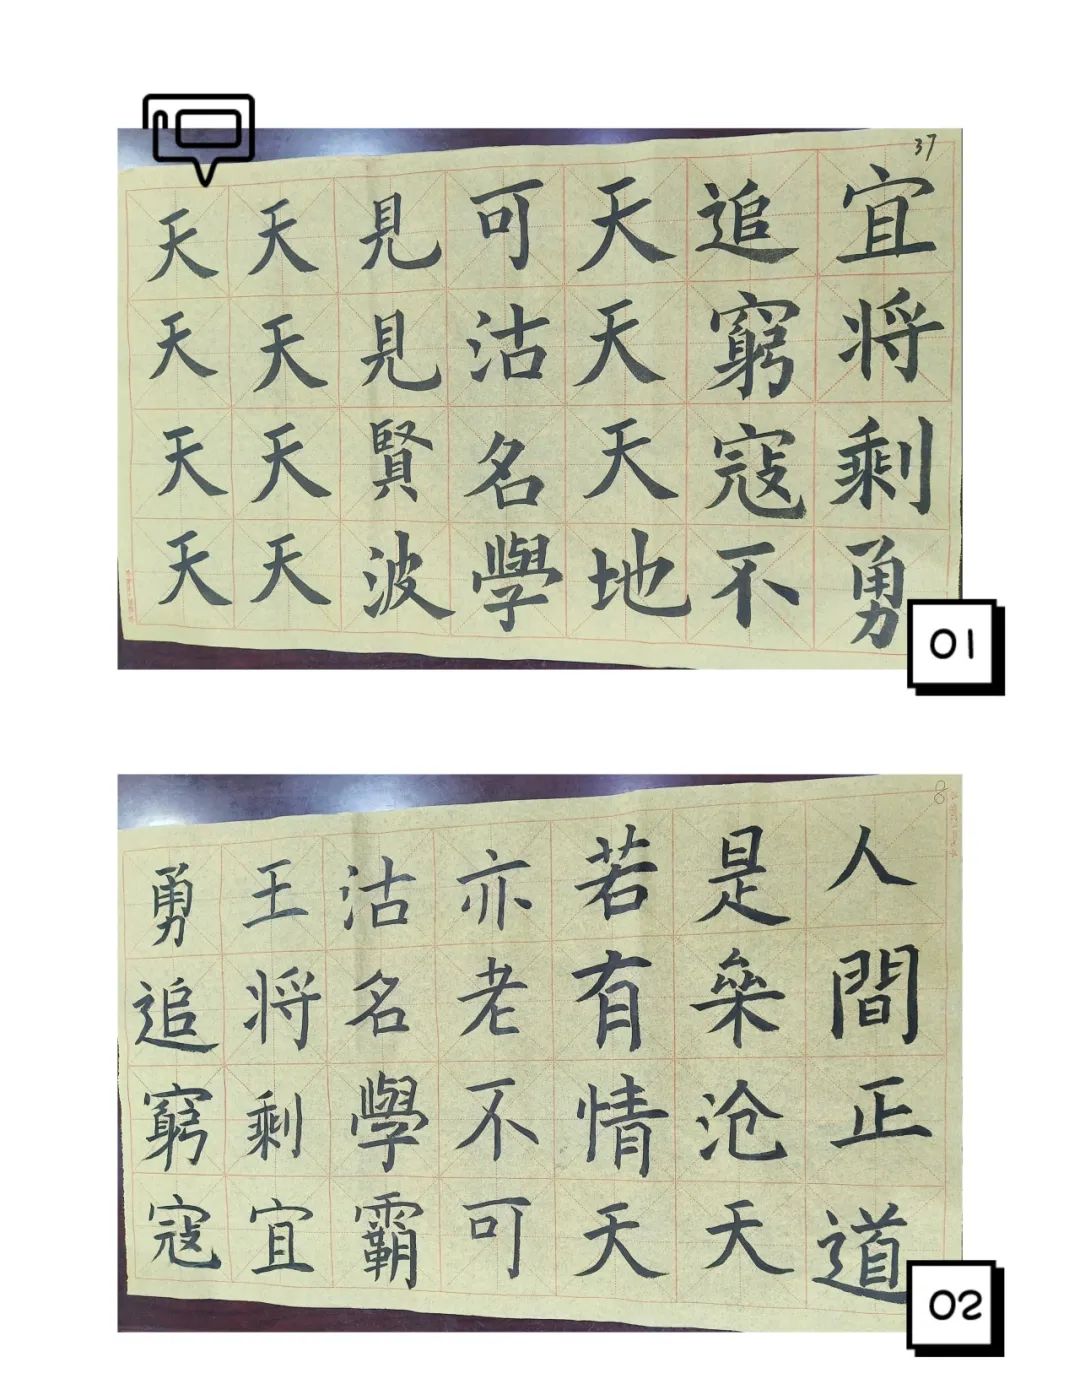 37
宜将剩勇
追窮寇不
天天天地
可沽名學
見見賢波
天天天天
天天天天
01
8
人間正道
是桑沧天
若有情天
亦老不可
沽名學霸
王将剩宜
勇追窮寇
02